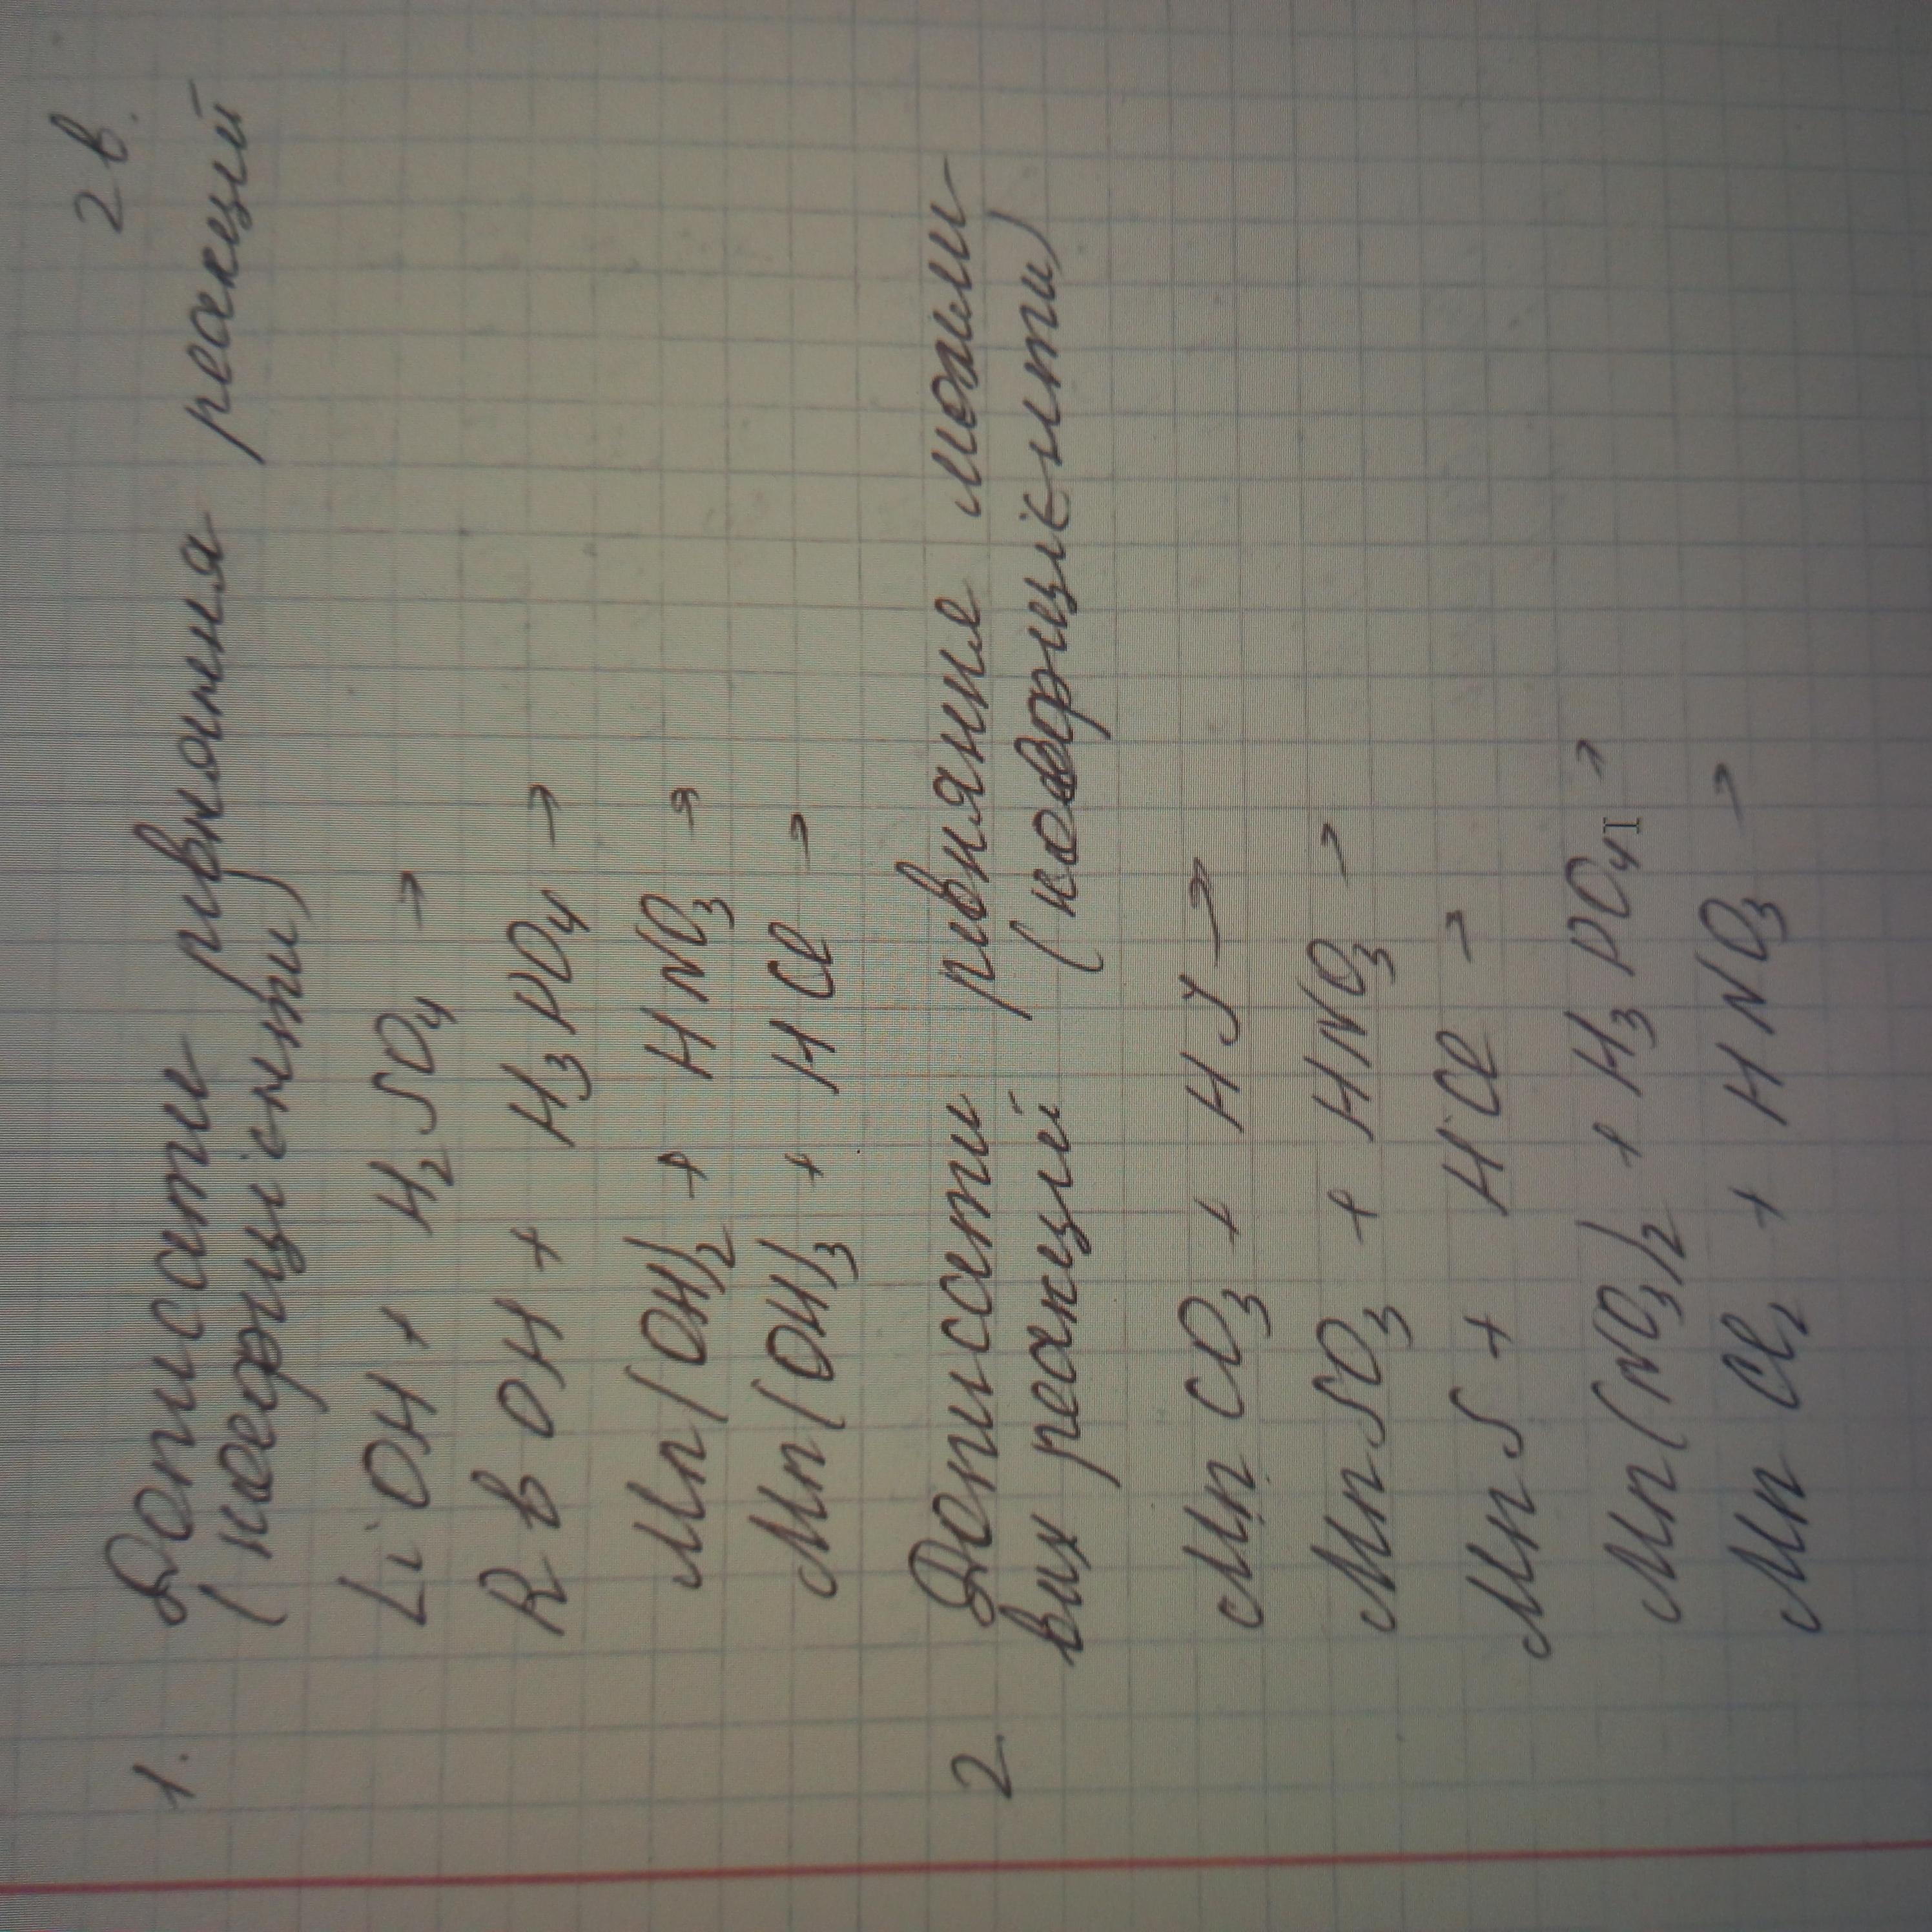 2 в.
1. Дописати рівняння реакцій
(коефіцієнти)
LiOH + H₂SO₄ →
RbOH + H₃PO₄ →
Mn(OH)₂ + HNO₃ →
Mn(OH)₃ + HCl →
2 Дописати рівняння можли-
вих реакцій (коефіцієнти)
MnCO₃ + HJ →
MnSO₃ + HNO₃ →
MnS + HCl →
Mn(NO₃)₂ + H₃PO₄ →
MnCl₂ + HNO₃ →